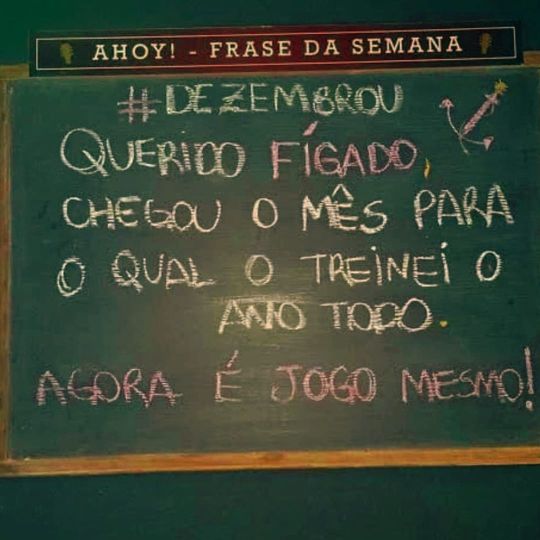 AHOY! - FRASE DA SEMANA
#DEZEMBROU
QUERIDO FÍGADO,
CHEGOU O MÊS PARA
O QUAL O TREINEI O
ANO TODO.
AGORA É JOGO MESMO!